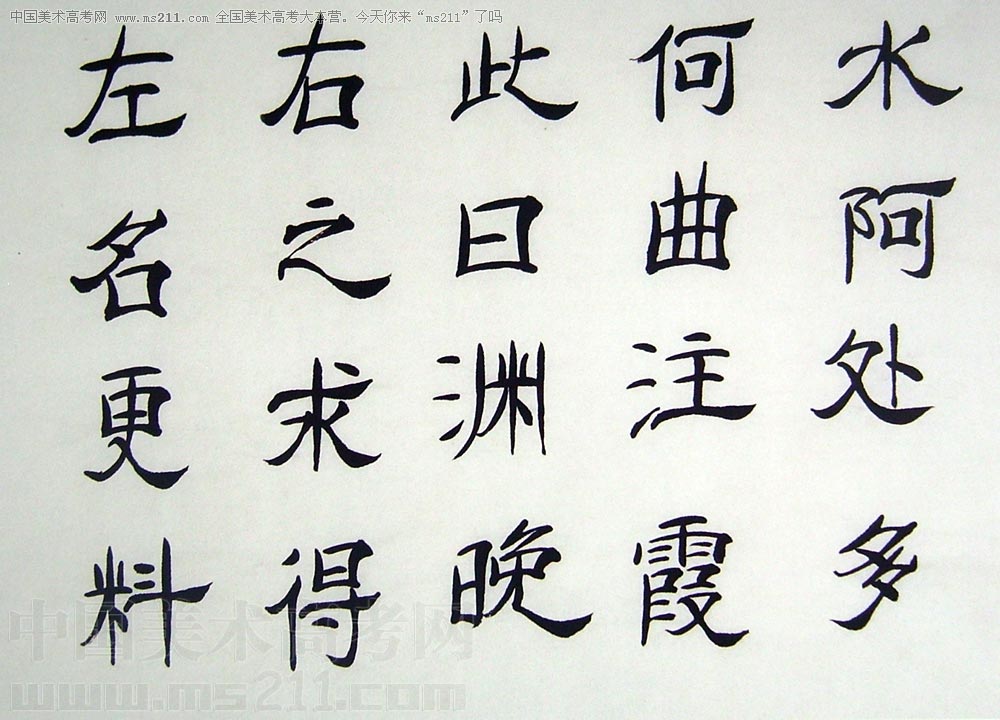 中国美术高考网 www.ms211.com 全国美术高考大本营。今天你来“ms211”了吗
左右此何水
名之曰曲阿
更求渊注处
料得晚霞多
中国美术高考网
www.ms211.com